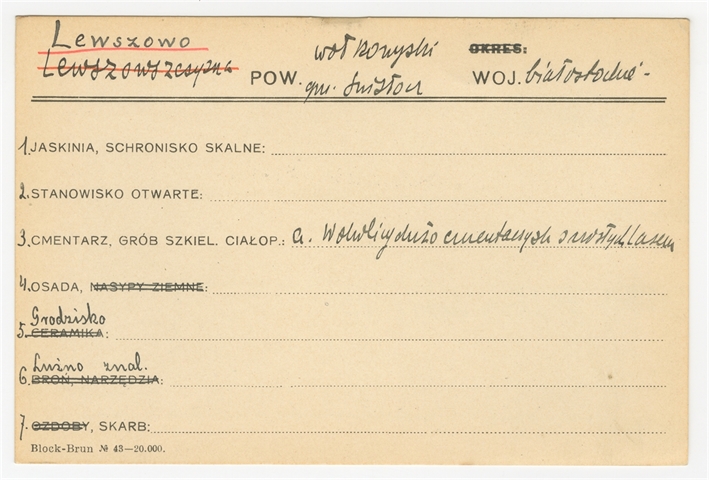 Lewszowo
Lewszowszczyzna
POW. wołkowyski
gm. Świsłocz
OKRES:
WOJ. białostockie -
1. JASKINIA, SCHRONISKO SKALNE:
2. STANOWISKO OTWARTE:
3. CMENTARZ, GRÓB SZKIEL. CIAŁOP.: a. W okolicy dużo cmentarzysk zarosłych lasem
4. OSADA, NASYPY ZIEMNE:
Grodzisko
5. CERAMIKA:
Luźno znal.
6. BROŃ, NARZĘDZIA:
7. OZDOBY, SKARB:
Block-Brun № 43—20.000.